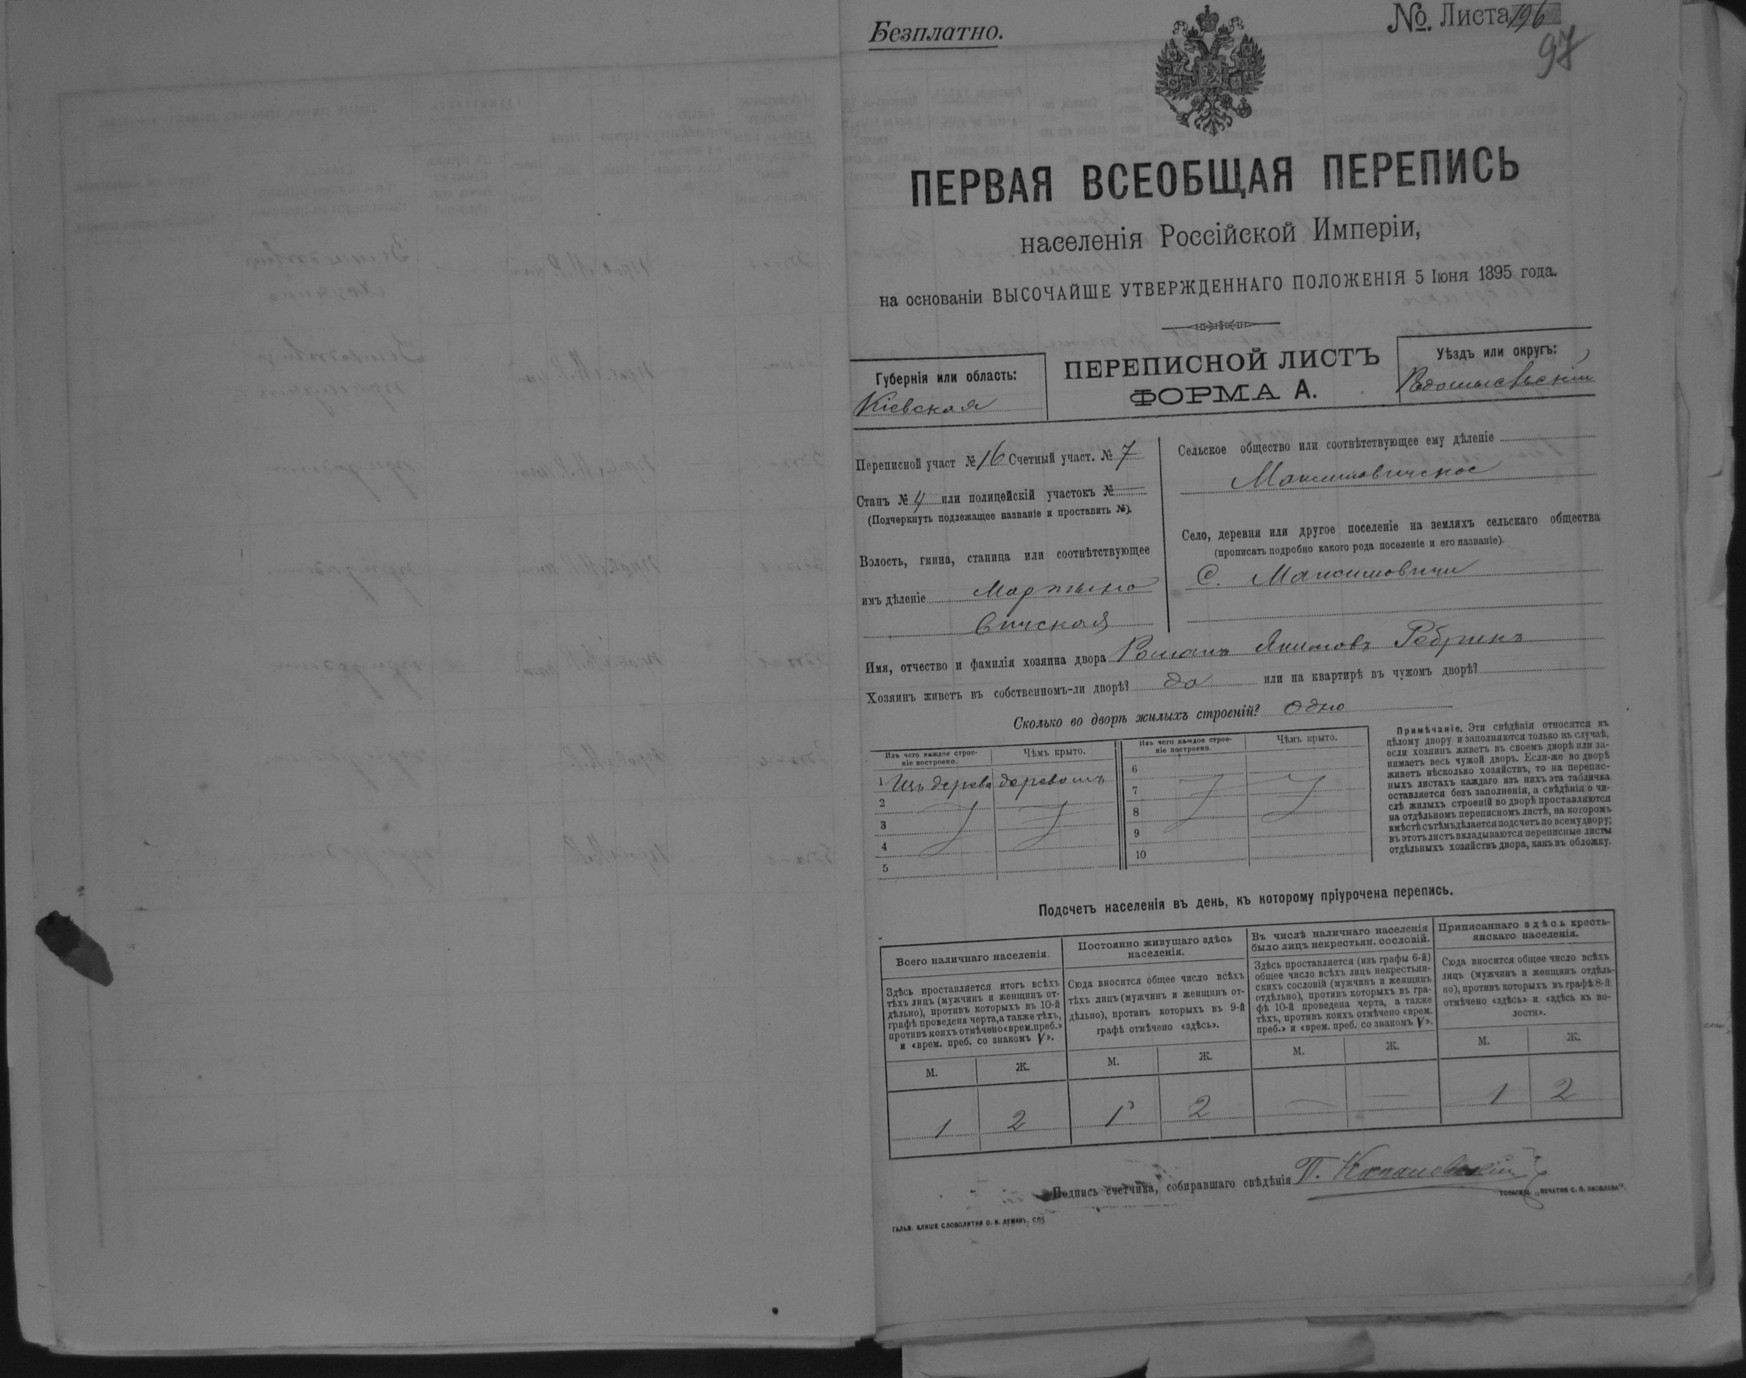 Безплатно.
№. Листа 196
97
ПЕРВАЯ ВСЕОБЩАЯ ПЕРЕПИСЬ
населенія Россійской Имперіи,
на основаніи ВЫСОЧАЙШЕ УТВЕРЖДЕННАГО ПОЛОЖЕНІЯ 5 Іюня 1895 года.
Губернія или область:
Кіевская
ПЕРЕПИСНОЙ ЛИСТЪ
ФОРМА А.
Уѣздъ или округъ:
Радомысльскій
Переписной участ № 16 Счетный участ. № 7
Станъ № 4 или полицейскій участокъ №
(Подчеркнуть подлежащее названіе и проставить №).
Волость, гмина, станица или соотвѣтствующее
имъ дѣленіе Мартыно
вичская
Сельское общество или соотвѣтствующее ему дѣленіе
Максимовичское
Село, деревня или другое поселеніе на земляхъ сельскаго общества
(прописать подробно какого рода поселеніе и его названіе).
С. Максимовичи
Имя, отчество и фамилія хозяина двора Романъ Якимовъ
Хозяинъ живетъ въ собственномъ-ли дворѣ? да или на квартирѣ въ чужомъ дворѣ?
Сколько во дворѣ жилыхъ строеній? Одно
Изъ чего каждое строе-
ніе построено.
Чѣмъ крыто.
Изъ чего каждое строе-
ніе построено.
Чѣмъ крыто.
1 Изъ дерева деревомъ
2
3
4
5
6
7
8
9
10
Примѣчаніе. Эти свѣдѣнія относятся къ
цѣлому двору и заполняются только въ случаѣ,
если хозяинъ живетъ въ своемъ дворѣ или за-
нимаетъ весь чужой дворъ. Если-же во дворѣ
живетъ нѣсколько хозяйствъ, то на перепис-
ныхъ листахъ каждаго изъ нихъ эта табличка
оставляется безъ заполненія, а свѣдѣнія о чи-
слѣ жилыхъ строеній во дворѣ проставляются
на отдѣльномъ переписномъ листѣ, на которомъ
вмѣстѣ съ тѣмъ дѣлается подсчетъ по всему двору;
въ этотъ листъ вкладываются переписные листы
отдѣльныхъ хозяйствъ двора, какъ въ обложку.
Подсчетъ населенія въ день, къ которому пріурочена перепись.
Всего наличнаго населенія.
Здѣсь проставляется итогъ всѣхъ
тѣхъ лицъ (мужчинъ и женщинъ от-
дѣльно), противъ которыхъ въ 10-й
графѣ проведена черта, а также тѣхъ,
противъ коихъ отмѣчено «врем. преб.»
и «врем. преб. со знакомъ V».
М. Ж.
1 2
Постоянно живущаго здѣсь
населенія.
Сюда вносится общее число всѣхъ
тѣхъ лицъ (мужчинъ и женщинъ от-
дѣльно), противъ которыхъ въ 9-й
графѣ отмѣчено «здѣсь».
М. Ж.
1 2
Въ числѣ наличнаго населенія
было лицъ некрестьян. сословій.
Здѣсь проставляется (изъ графы 6-й)
общее число всѣхъ лицъ некрестьян-
скихъ сословій (мужчинъ и женщинъ
отдѣльно), противъ которыхъ въ гра-
фѣ 10-й проведена черта, а также
тѣхъ, противъ коихъ отмѣчено «врем.
преб.» и «врем. преб. со знакомъ V».
М. Ж.
— —
Приписаннаго здѣсь кресть-
янскаго населенія.
Сюда вносится общее число всѣхъ
лицъ (мужчинъ и женщинъ отдѣль-
но), противъ которыхъ въ графѣ 8-й
отмѣчено «здѣсь» и «здѣсь къ во-
лости».
М. Ж.
1 2
Подпись счетчика, собиравшаго свѣдѣнія П.
ГАЛЬВ. КЛИШЕ СЛОВОЛИТНИ О. И. ЛЕМАНЪ, СПБ